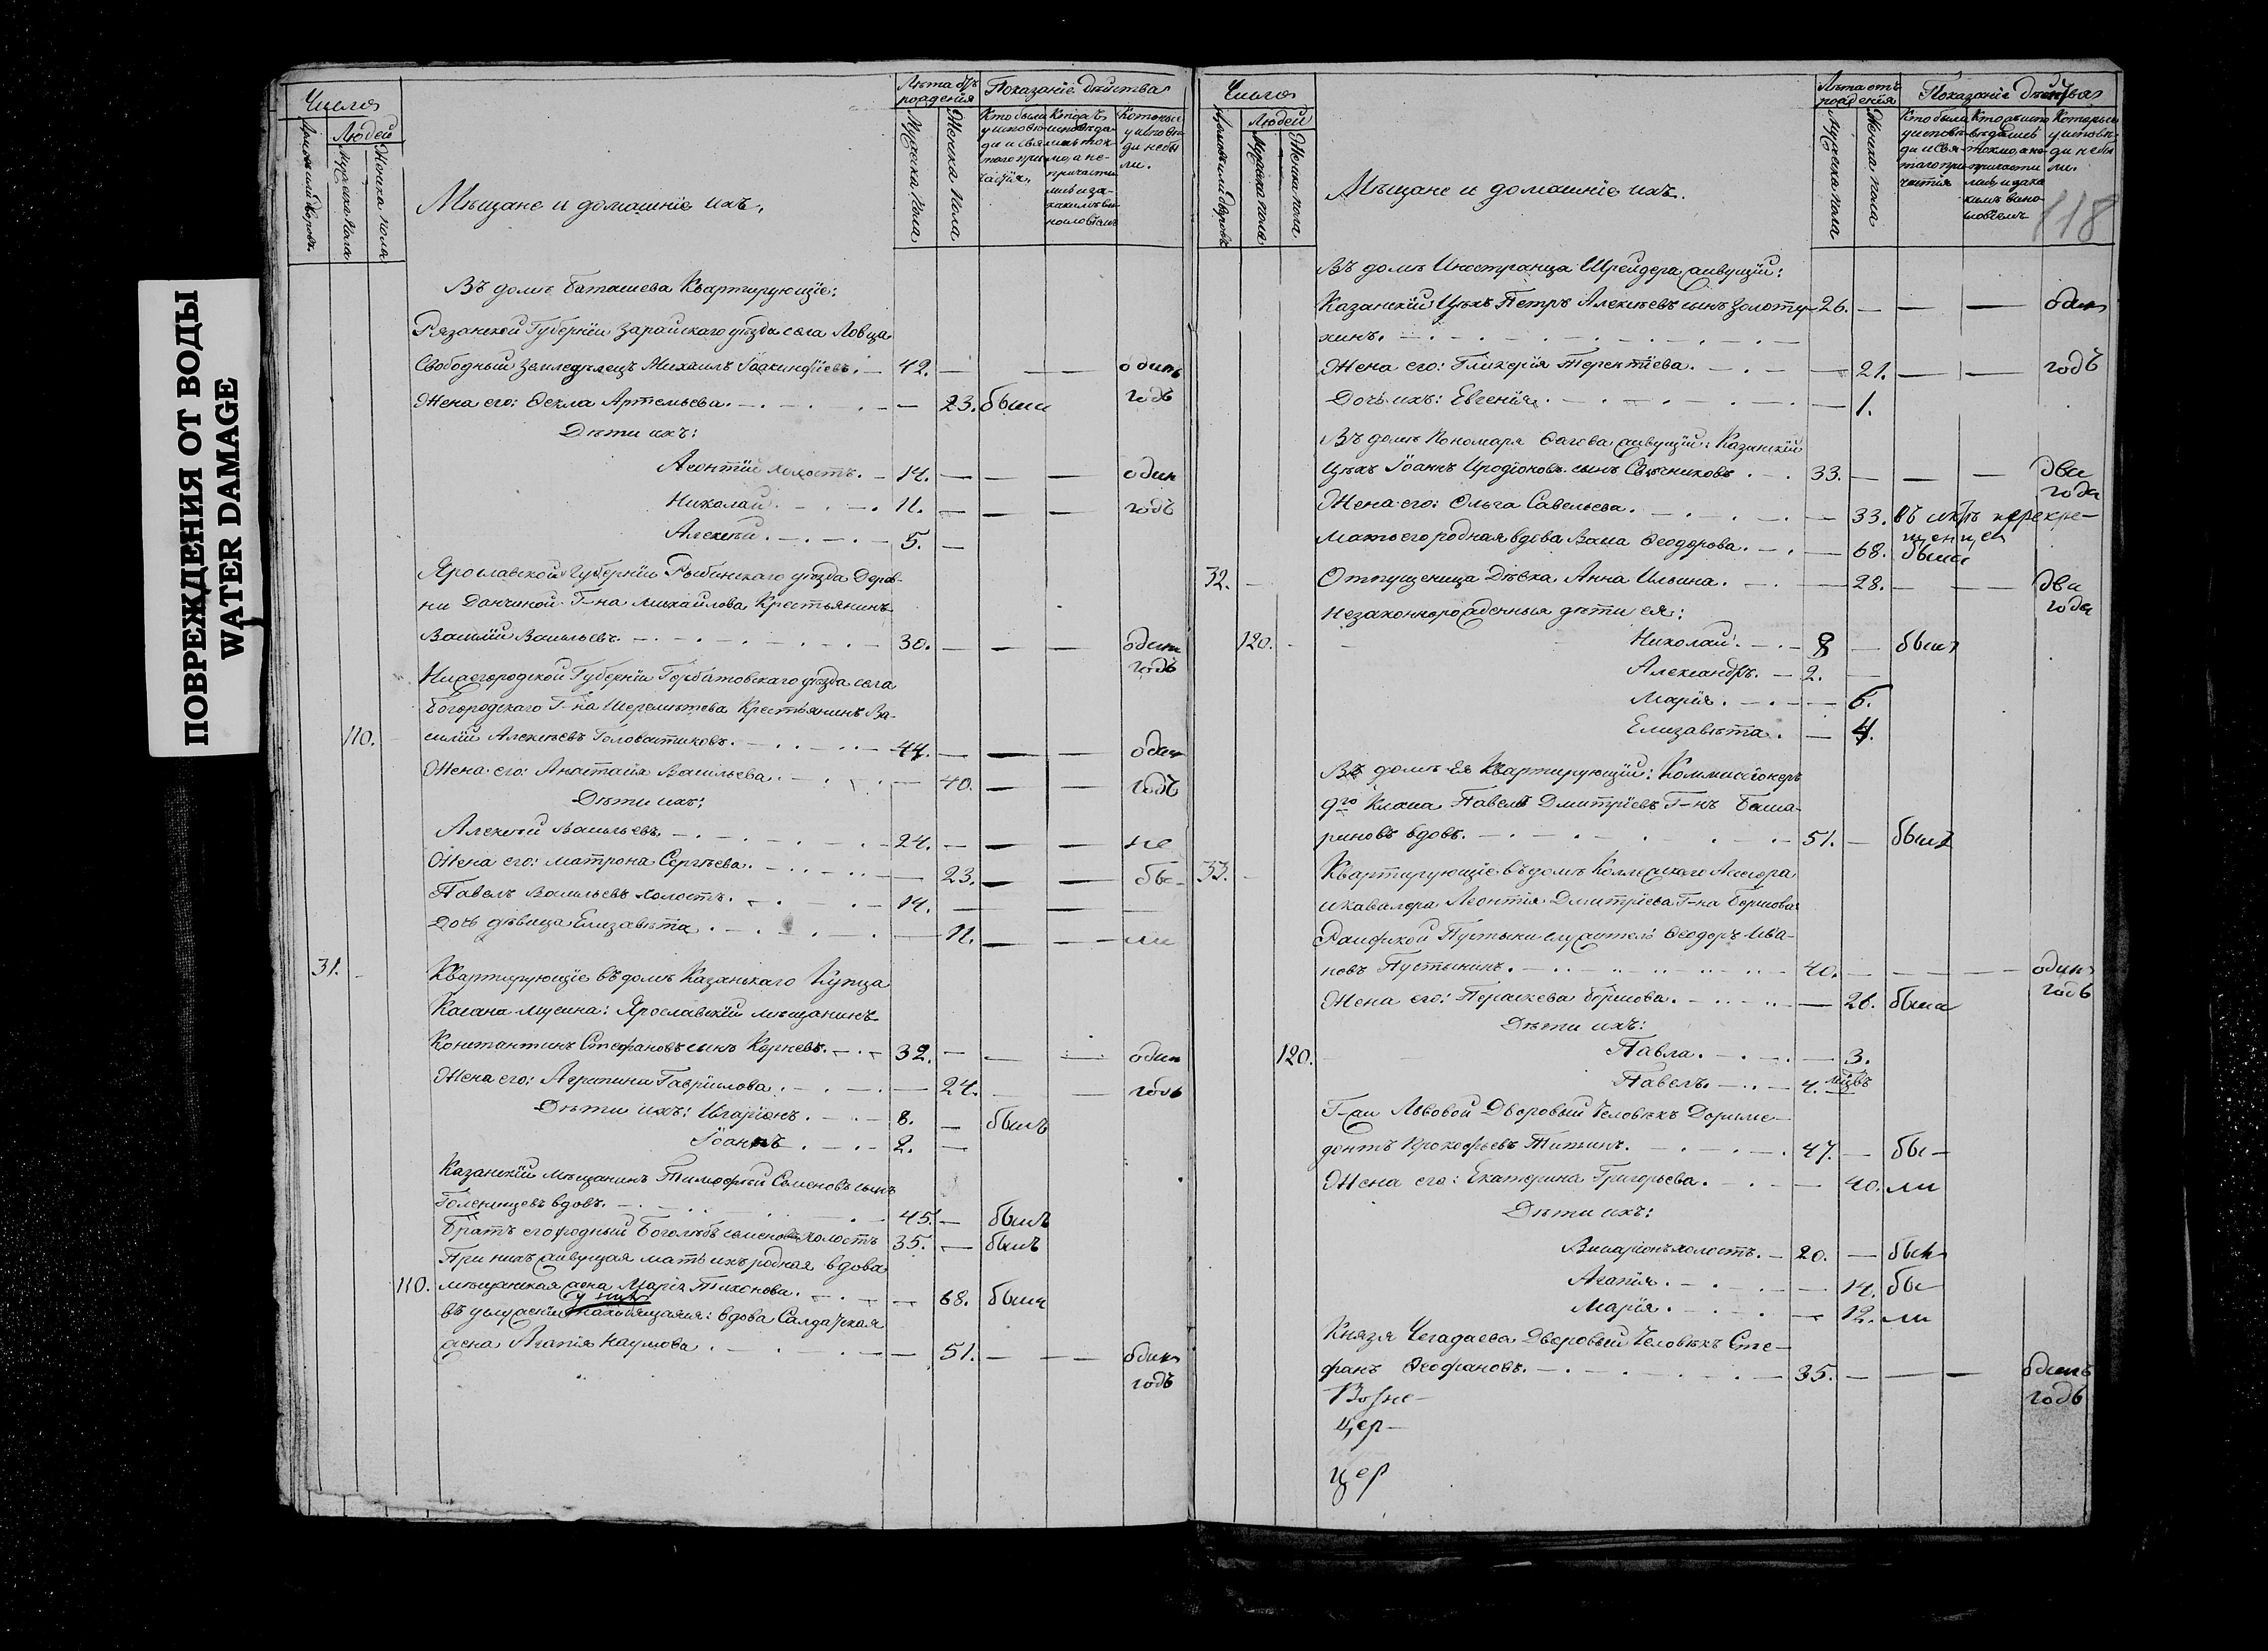 ПОВРЕЖДЕНИЯ ОТ ВОДЫ
WATER DAMAGE
Число
Людей
Мужеска пола
Женска пола
Мѣщане и домашніе ихъ.
Лѣта отъ рожденія
Мужеска пола
Женска пола
Показаніе дѣйства
Въ домѣ Баташева Квартирующіе:
Рязанской Губерніи Зарайскаго уѣзда села Ловца
Свободный Земледѣлецъ Михаилъ Іоакинфіевъ. 42. — — — одинъ
Жена его: Ѳекла Артемьева. — 23. была годъ
Дѣти ихъ:
Леонтій холостъ. 14. — — — один
Николай. 11. — — — годъ
Алексѣй. 5. —
Ярославской Губерніи Рыбинскаго уѣзда Дерев-
ни Данчиной Г-на Михайлова Крестьянинъ
Василій Васильевъ. 30. — — — один
годъ
Нижегородской Губерніи Горбатовскаго уѣзда села
Богородскаго Г-на Шереметева Крестьянинъ Ва-
110. силій Алексѣевъ Головастиковъ. 44. — — — один
Жена его: Анастасія Васильева. — 40. — — годъ
Дѣти ихъ:
Алексѣй Васильевъ. 24. — — — не
Жена его: Матрона Сергѣева. — 23. — — бы-
Павелъ Васильевъ холостъ. 14. — — —
Дочь дѣвица Елизавета. — 11. — — ли
31. Квартирующіе въ домѣ Казанскаго Купца
Касана Мусина: Ярославскій мѣщанинъ
Константинъ Стефановъ сынъ Корневъ. 32. — — — один
Жена его: Агрипина Гавриилова. — 24. — — годъ
Дѣти ихъ: Иларіонъ. 8. — былъ
Іоаннъ. 2. —
Казанскій мѣщанинъ Тимофей Семеновъ сынъ
Голенищевъ вдовъ. 45. — былъ
Братъ его родный Боголѣбъ Семеновъ холостъ 35. — былъ
При нихъ живущая мать ихъ родная вдова
110. мѣщанская жена Марія Тихонова. — 68. была
у них
въ услуженіи находящаяся: вдова Салдатская
жена Агапія Наумова. — 51. — — один
годъ
Число
Людей
Мужеска пола
Женска пола
Мѣщане и домашніе ихъ.
Лѣта отъ рожденія
Мужеска пола
Женска пола
Показаніе дѣйства
118
Въ домѣ Иностранца Шрейдера живущій:
Казанскій Цѣхъ Петръ Алексѣевъ сынъ Золоту- 26. — — — один
хинъ.
Жена его: Гликерія Терентіева. — 21. — — годъ
Дочь ихъ: Евгенія. — 1.
Въ домѣ Пономаря живущій: Казанскій
Цѣхъ Іоаннъ Иродіоновъ сынъ Свѣчниковъ. 33. — — — два
года
Жена его: Ольга Савельева. — 33.
Мать его родная вдова Васса Ѳеодорова. — 68. была
32. Отпущеница Дѣвка Анна Ильина. — 28. — — два
года
Незаконнорожденныя дѣти ея:
120. Николай. 8 — былъ
Александръ. 2. —
Марія. — 6.
Елизавета. — 4.
Въ домѣ Ея Квартирующій: Коммисіонеръ
9го Класа Павелъ Дмитріевъ Г-нъ Баша-
риновъ вдовъ. 51. — былъ
33. Квартирующіе въ домѣ Коллежскаго Асесора
и кавалера Леонтія Дмитріева Г-на Борисова
Раифской Пустыни служитель Ѳеодоръ Ива-
новъ Пустынинъ. 40. — — — один
Жена его: Параскева Борисова. — 26. была годъ
Дѣти ихъ:
120. Павла. — 3.
Павелъ. 4.
Г-жи Львовой Дворовый Человѣкъ Дориме-
донтъ Прокофьевъ Титинъ. 47. — бы-
Жена его: Екатерина Григорьева. — 40. ли
Дѣти ихъ:
Виссаріонъ холостъ. 20. — былъ
Агапія. — 14. бы-
Марія. — 12. ли
Князя Чегадаева Дворовый Человѣкъ Сте-
фанъ Ѳеофановъ. 35. — — — одинъ
годъ
Возне-
Цер-
цер